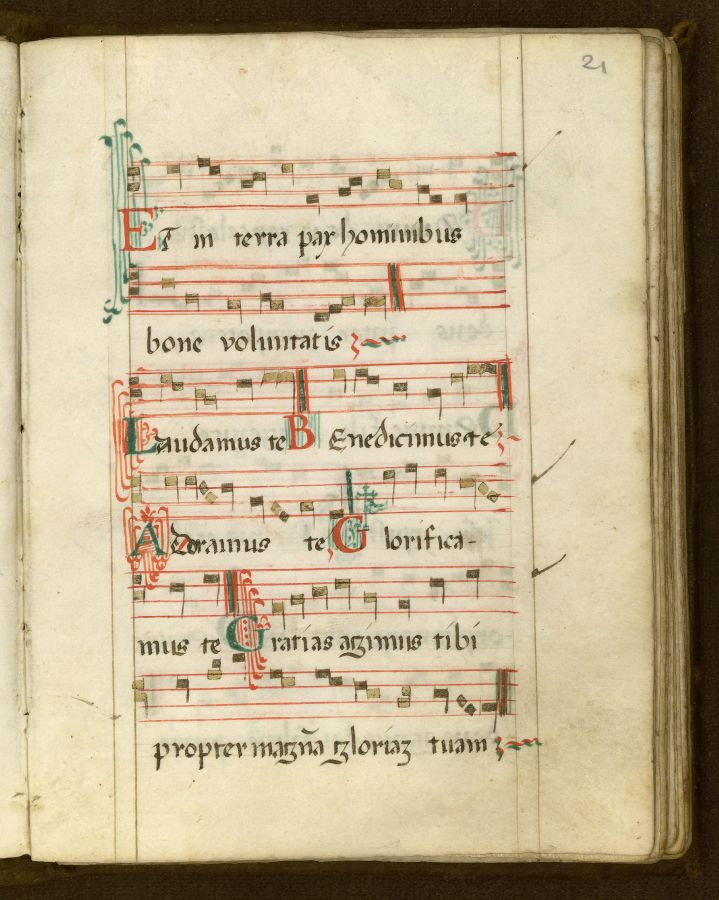 21
ET in terra pax hominibus
bone voluntatis
Laudamus te BEnedicimus te
Adoramus te Glorifica-
mus te Gratias agimus tibi
propter magña gloriaʒ tuam